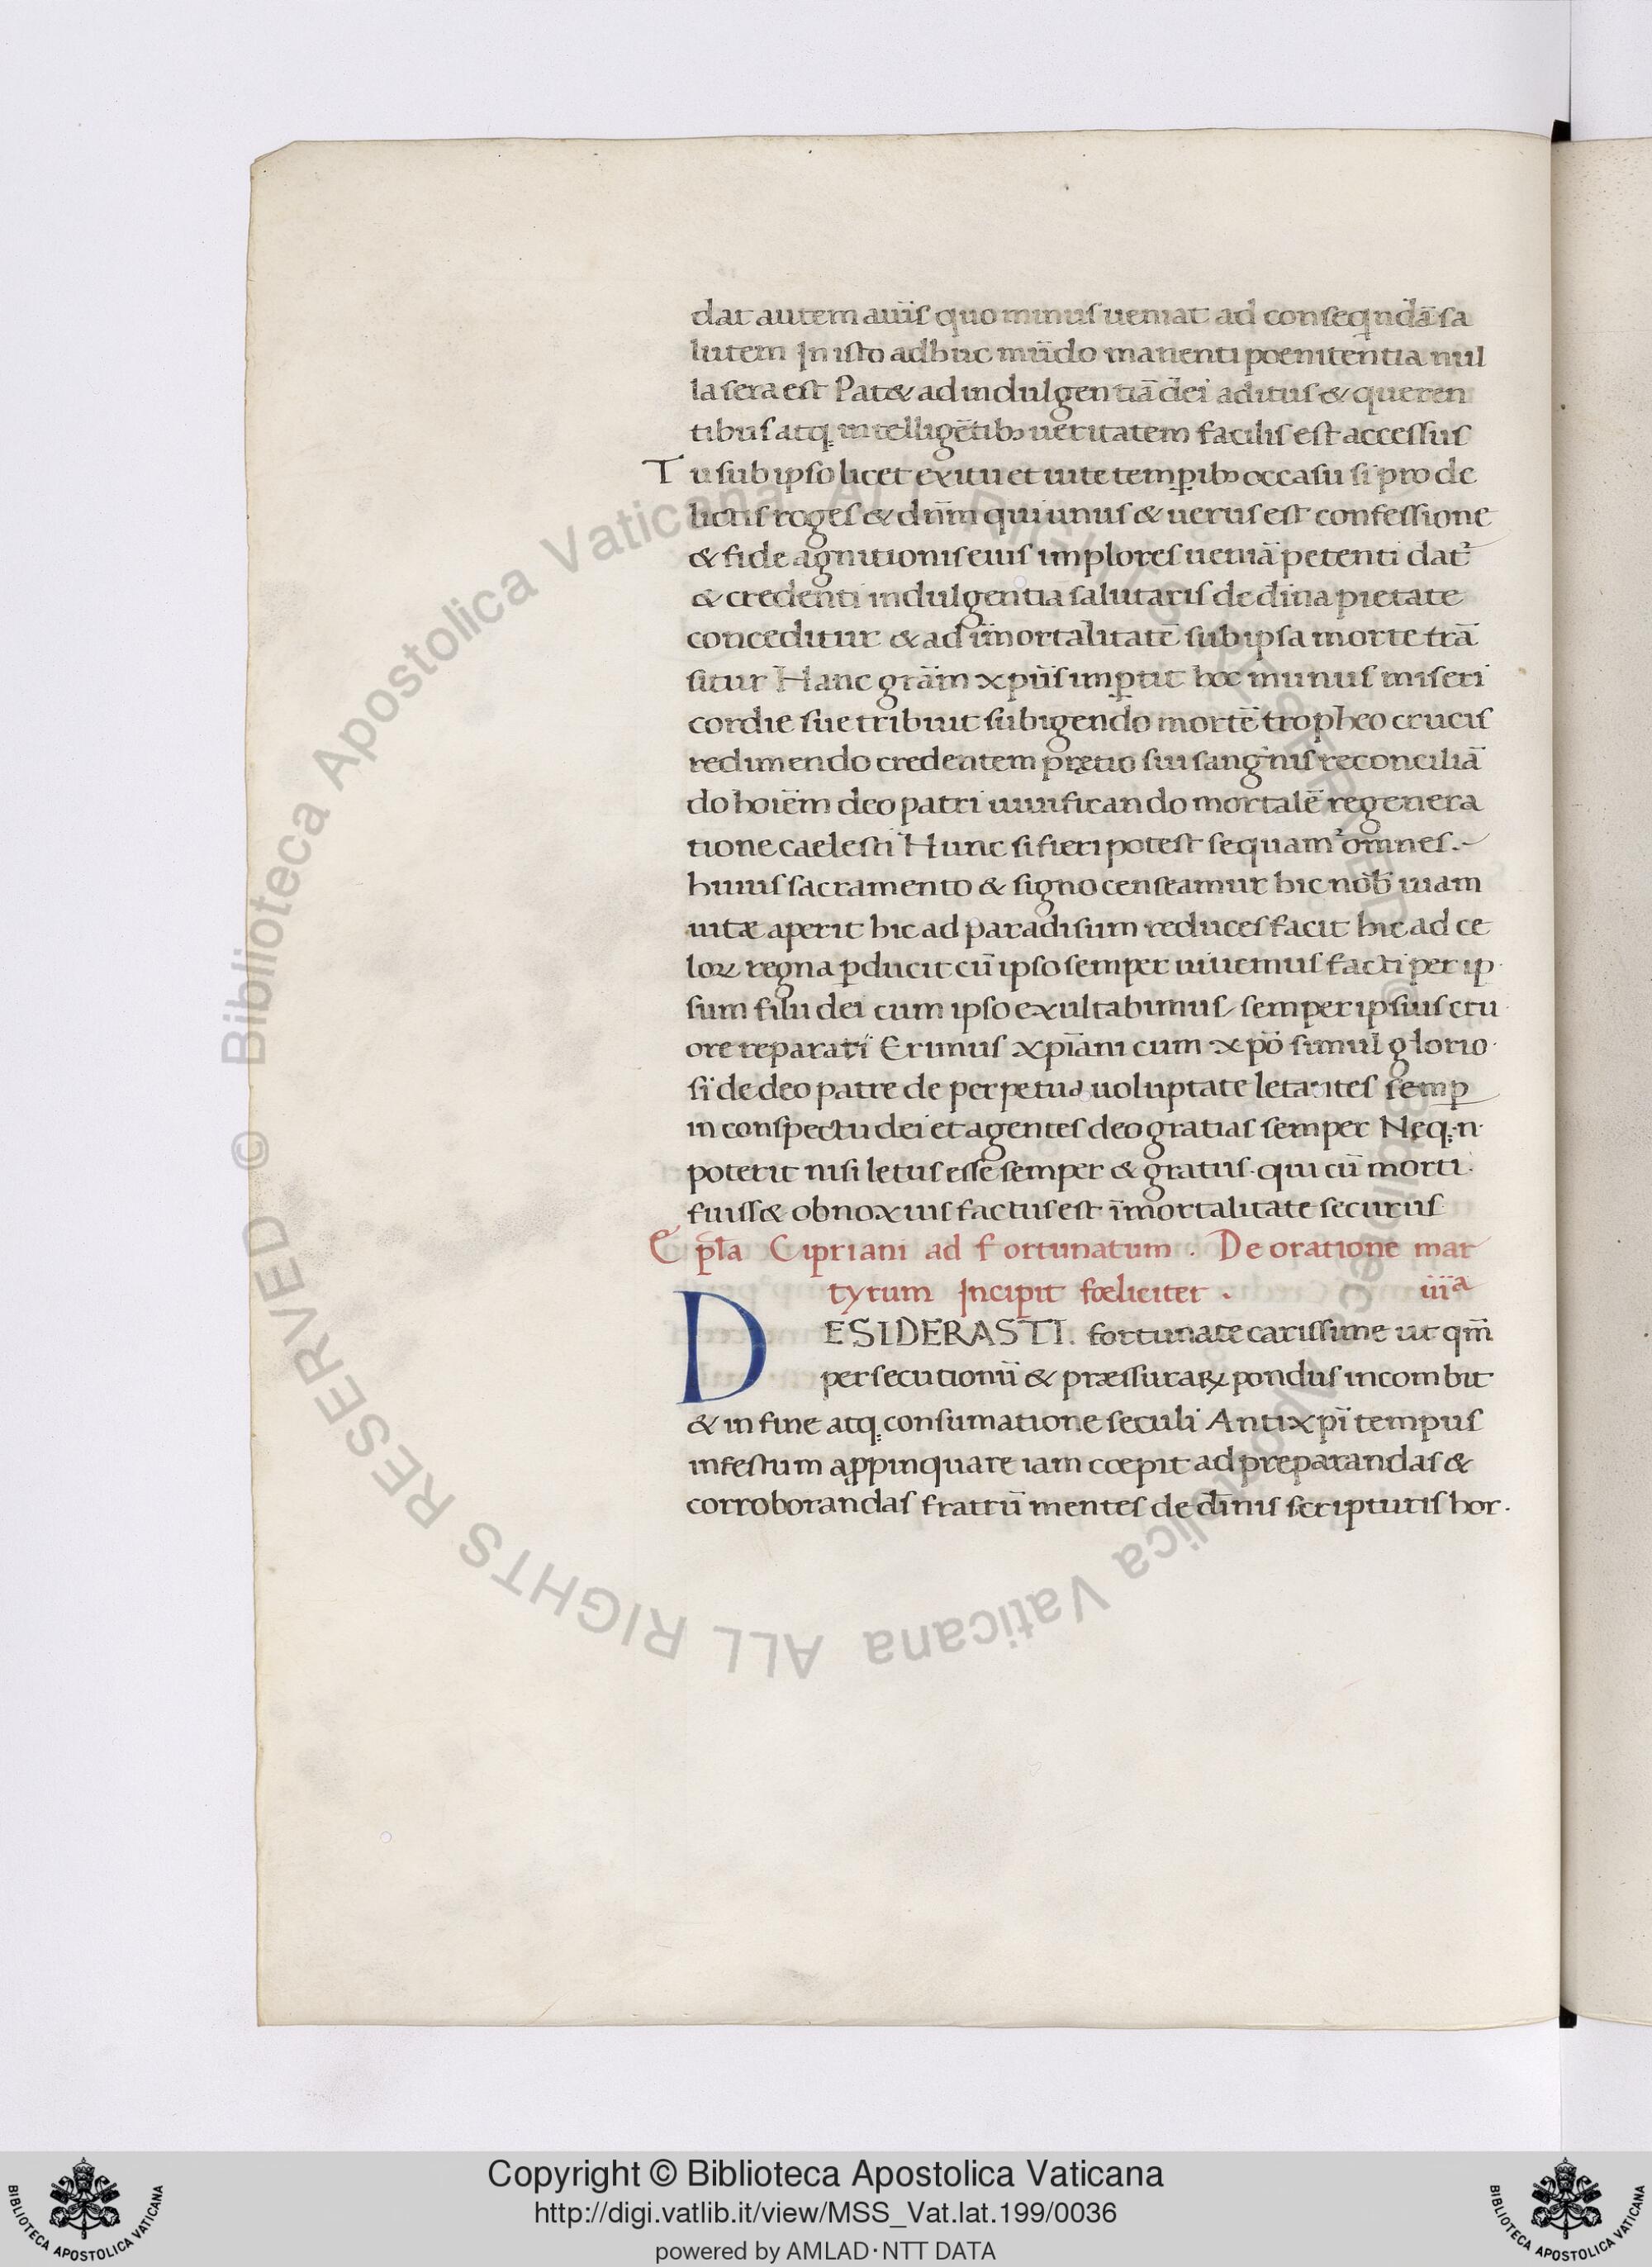 dat autem auiis quo minus ueniat ad conseq̃ndã sa
lutem In isto adhuc mũdo manenti poenitentia nul
la sera est Patet ad indulgentiã dei aditus & queren
tibus atq; intelligẽtibꝫ ueritatem facilis est accessus
Tu sub ipso licet exitu et uite temꝑibꝫ occasu si pro de
lictis roges & dñm qui unus & uerus est confessione
& fide agnitionis eius implores ueniã petenti dat᷑
& credenti indulgentia salutaris de diũa pietate
conceditur & ad ĩmortalitatẽ sub ipsa morte trã
situr Hanc grãm xpũs imꝑtit hoc munus miseri
cordie sue tribuit subigendo mortẽ tropheo crucis
redimendo credentem prętio sui sang̃nis reconciliã
do hoiẽm deo patri uiuificando mortalẽ regenera
tione caelesti Hunc si fieri potest sequam᷑ omnes.
huius sacramento & signo censeamur hic nob̃ uiam
uitæ aperit hic ad paradisum reduces facit hic ad ce
loꝝ regna ꝑducit cũ ipso semper uiuemus facti per ip
sum filii dei cum ipso exultabimus semper ipsius cru
ore reparati Erimus xpiãni cum xpõ simul glorio
si de deo patre de perpetua uoluptate letantes semꝑ
in conspectu dei et agentes deo gratias semper Neq; n̄
poterit nisi letus esse semper & gratus qui cũ morti
fuiss& obnoxius factus est ĩmortalitate securus
Epl̃a Cipriani ad fortunatum . De oratione mar
tyrum Incipit fœliciter . iiiᵃ
DESIDERASTI. fortunate carissime ut qm̃
persecutionũ & præssuraꝝ pondus incombit
& in fine atq; consumatione seculi Antixpĩ tempus
infestum aꝓpinquare iam cœpit ad preparandas &
corroborandas fratrũ mentes de diũinis scripturis hor
© Biblioteca Apostolica Vaticana ALL RIGHTS RESERVED
© Biblioteca Apostolica Vaticana ALL RIGHTS RESERVED
Copyright © Biblioteca Apostolica Vaticana
http://digi.vatlib.it/view/MSS_Vat.lat.199/0036
powered by AMLAD·NTT DATA
BIBLIOTECA APOSTOLICA VATICANA
BIBLIOTECA APOSTOLICA VATICANA